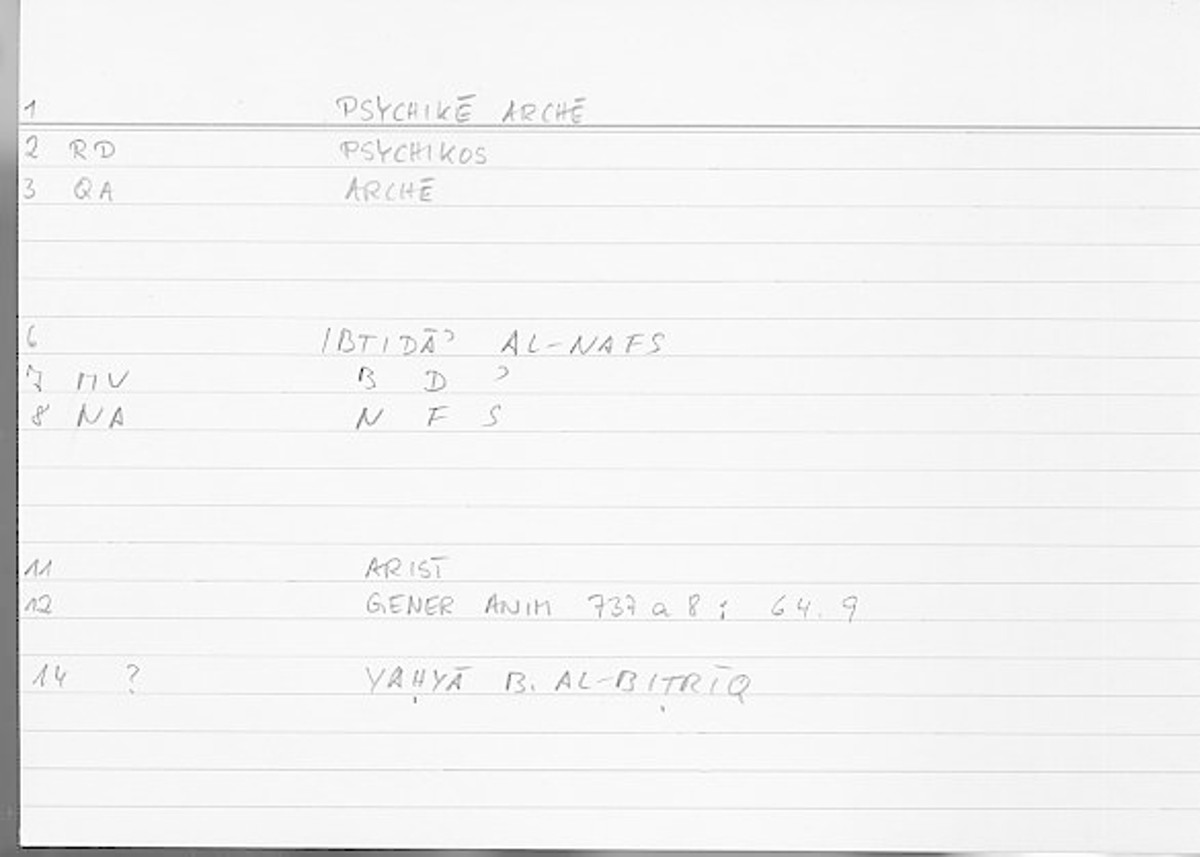 1 PSYCHIKĒ ARCHĒ
2 RD PSYCHIKOS
3 QA ARCHĒ
6 IBTIDĀʾ AL-NAFS
7 MV B D ʾ
8 NA N F S
11 ARIST
12 GENER ANIM 737 a 8 ; 64.9
14 ? YAḤYĀ B. AL-BIṬRĪQ